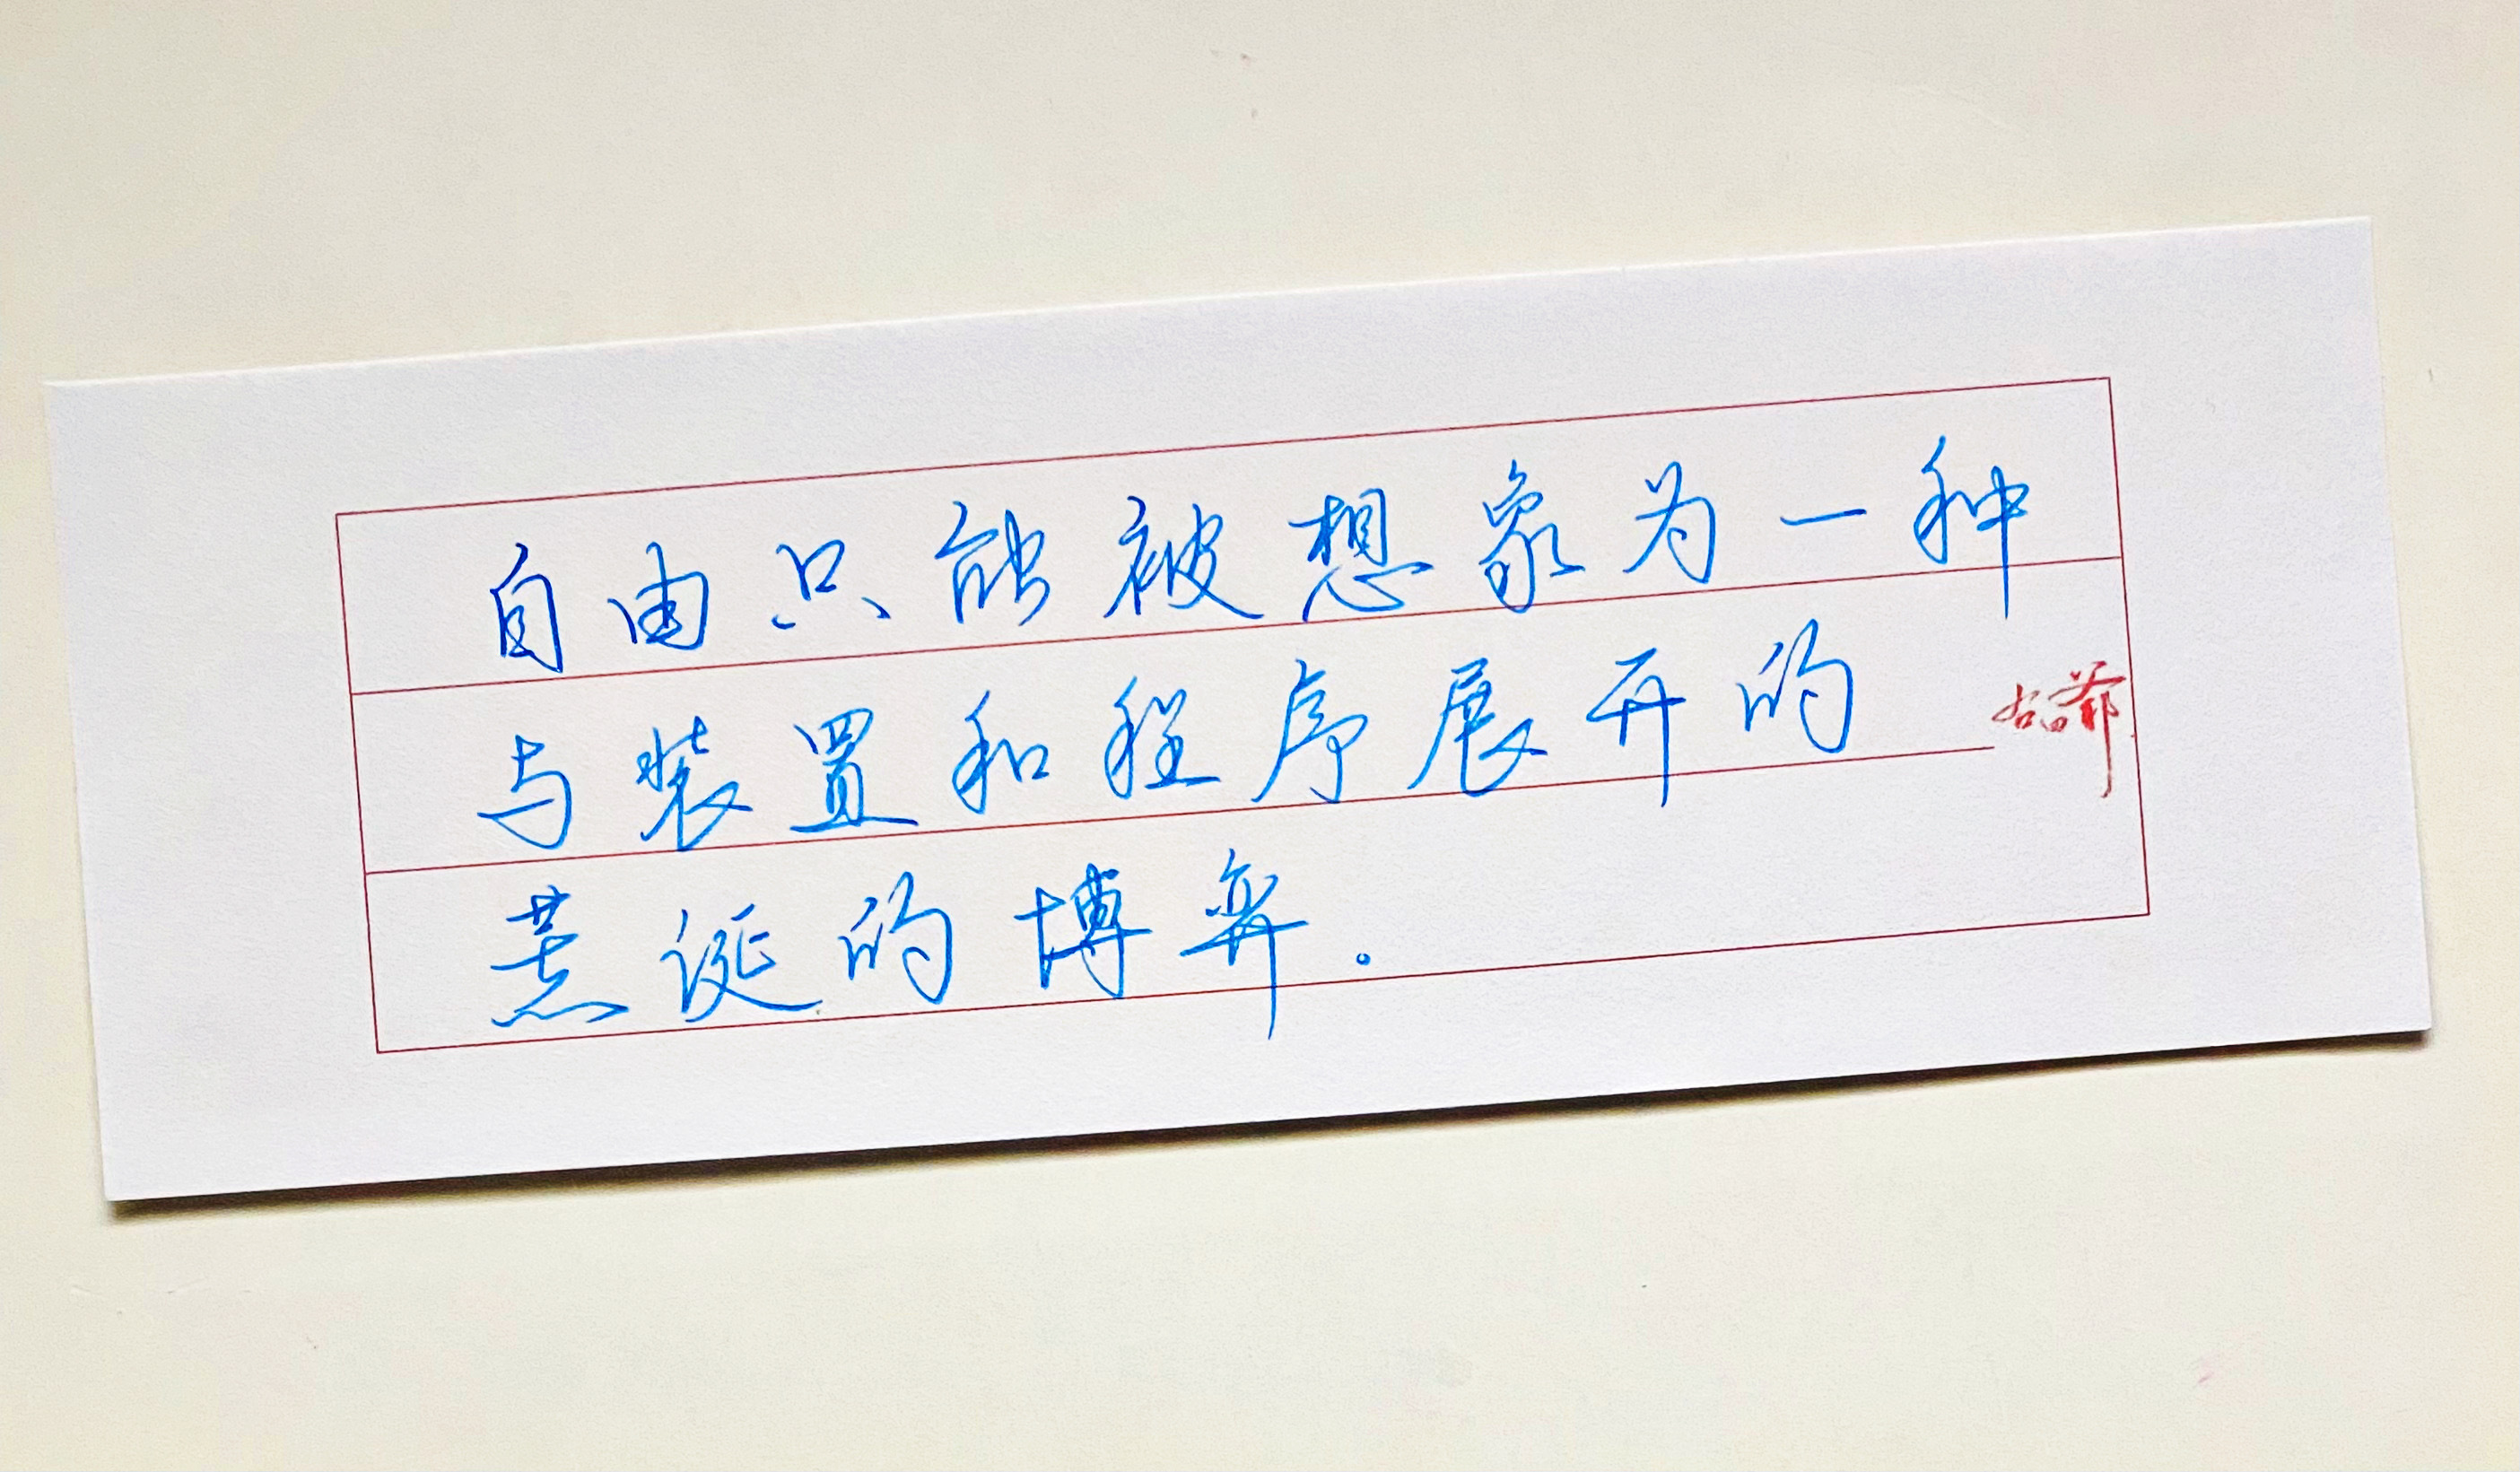 自由只能被想象为一种
与装置和程序展开的
荒诞的博弈。